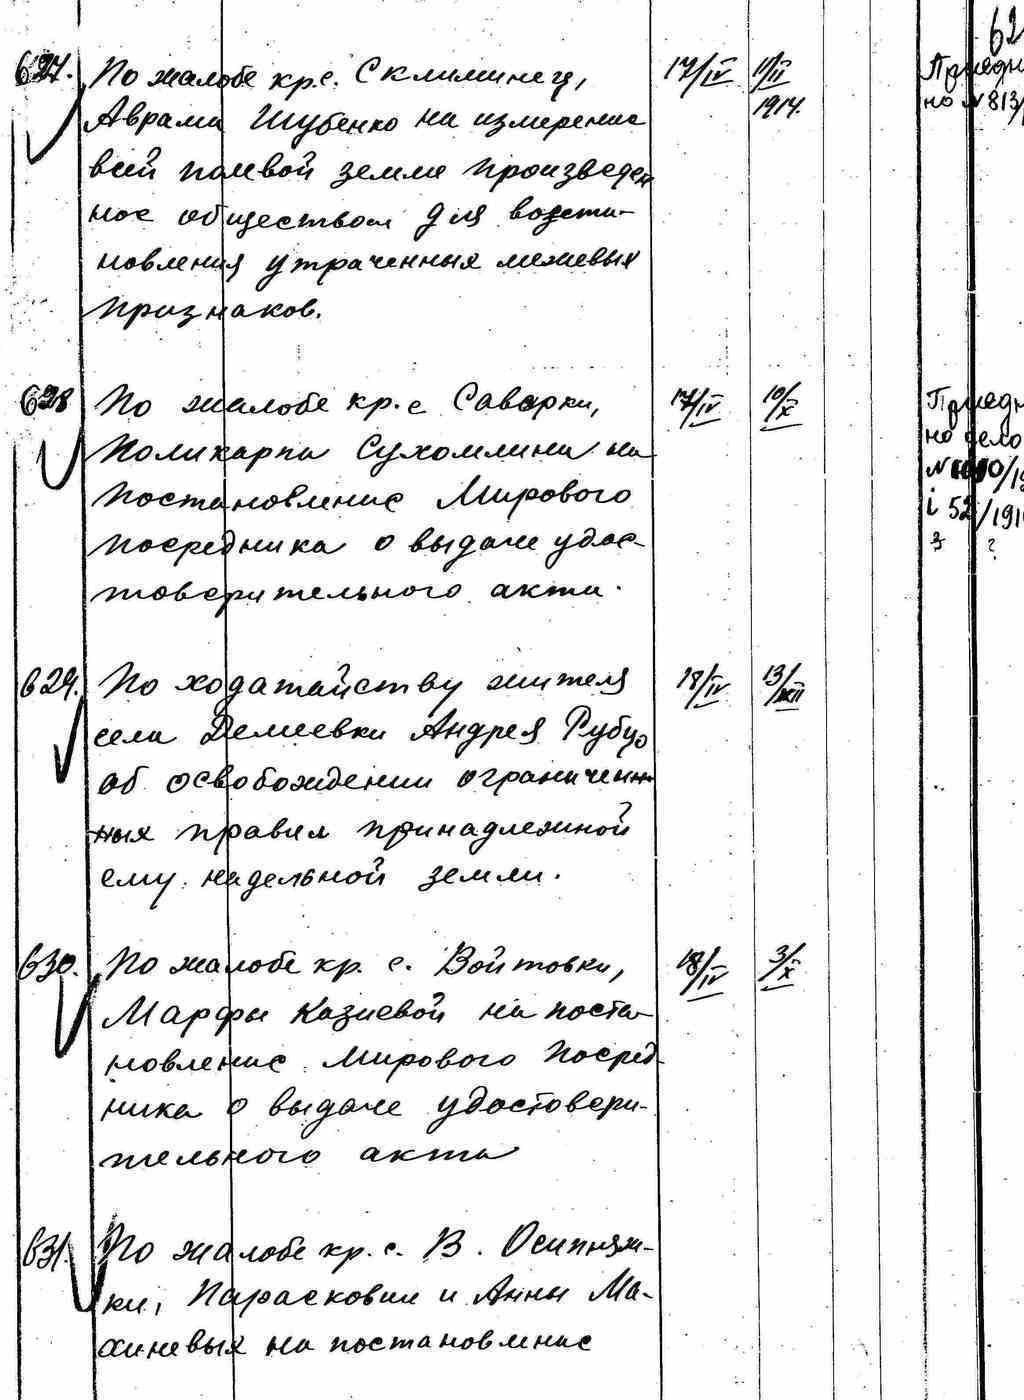 62
627. По жалобе кр. с. Склиминец,
Аврама Шубенко на измерение
всей полевой земле произведен
ное обществом для возста-
новления утраченных межевых
признаков.
17/IV 11/II
1914.
Приедн
но № 813/
628 По жалобе кр. с Саварки,
Поликарпа Сухомлина на
постановление Мирового
посредника о выдаче удос-
товерительного акта.
17/IV 10/X
Приедн
но дело
і 52/191
з ?
629. По ходатайству жителя
села Демеевки Андрея Рубцо
об освобождении ограничен
ных правил принадлежной
ему надельной земли.
18/IV 13/XII
630. По жалобе кр. с. Войтовки,
Марфы Казиевой на поста-
новление Мирового Посред-
ника о выдаче удостовери-
тельного акта
18/IV 3/X
631. По жалобе кр. с. В. Оситняж-
ки, Парасковии и Анны Ма-
хиневых на постановление